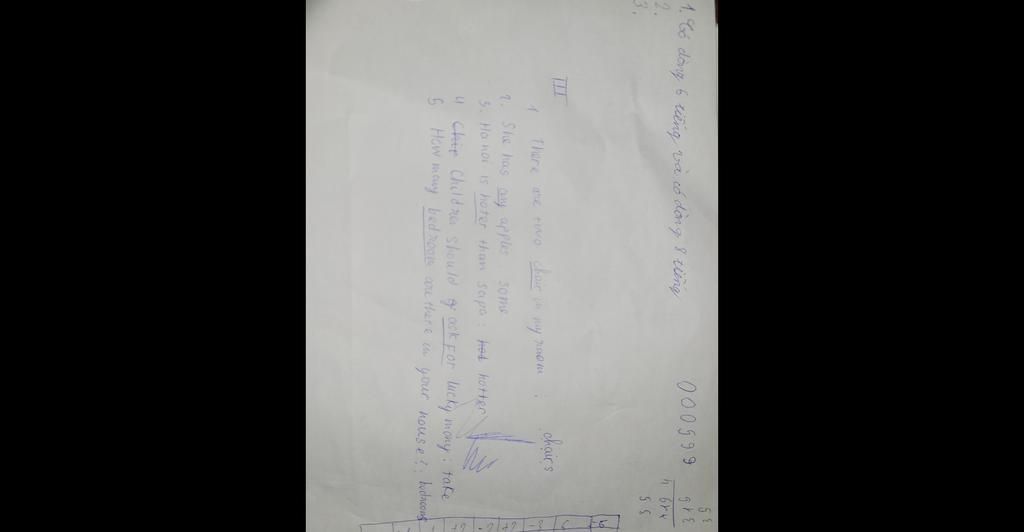 1. Có dòng 6 tiếng và có dòng 8 tiếng
2.
3.
III
1 There are two chair in my room : chairs
2. She has any apples some
3. Hanoi is hoter than sapa : hot hotter
4 Children should ask for lucky mony : take
5 How many bedroom are there in your house? : bedrooms